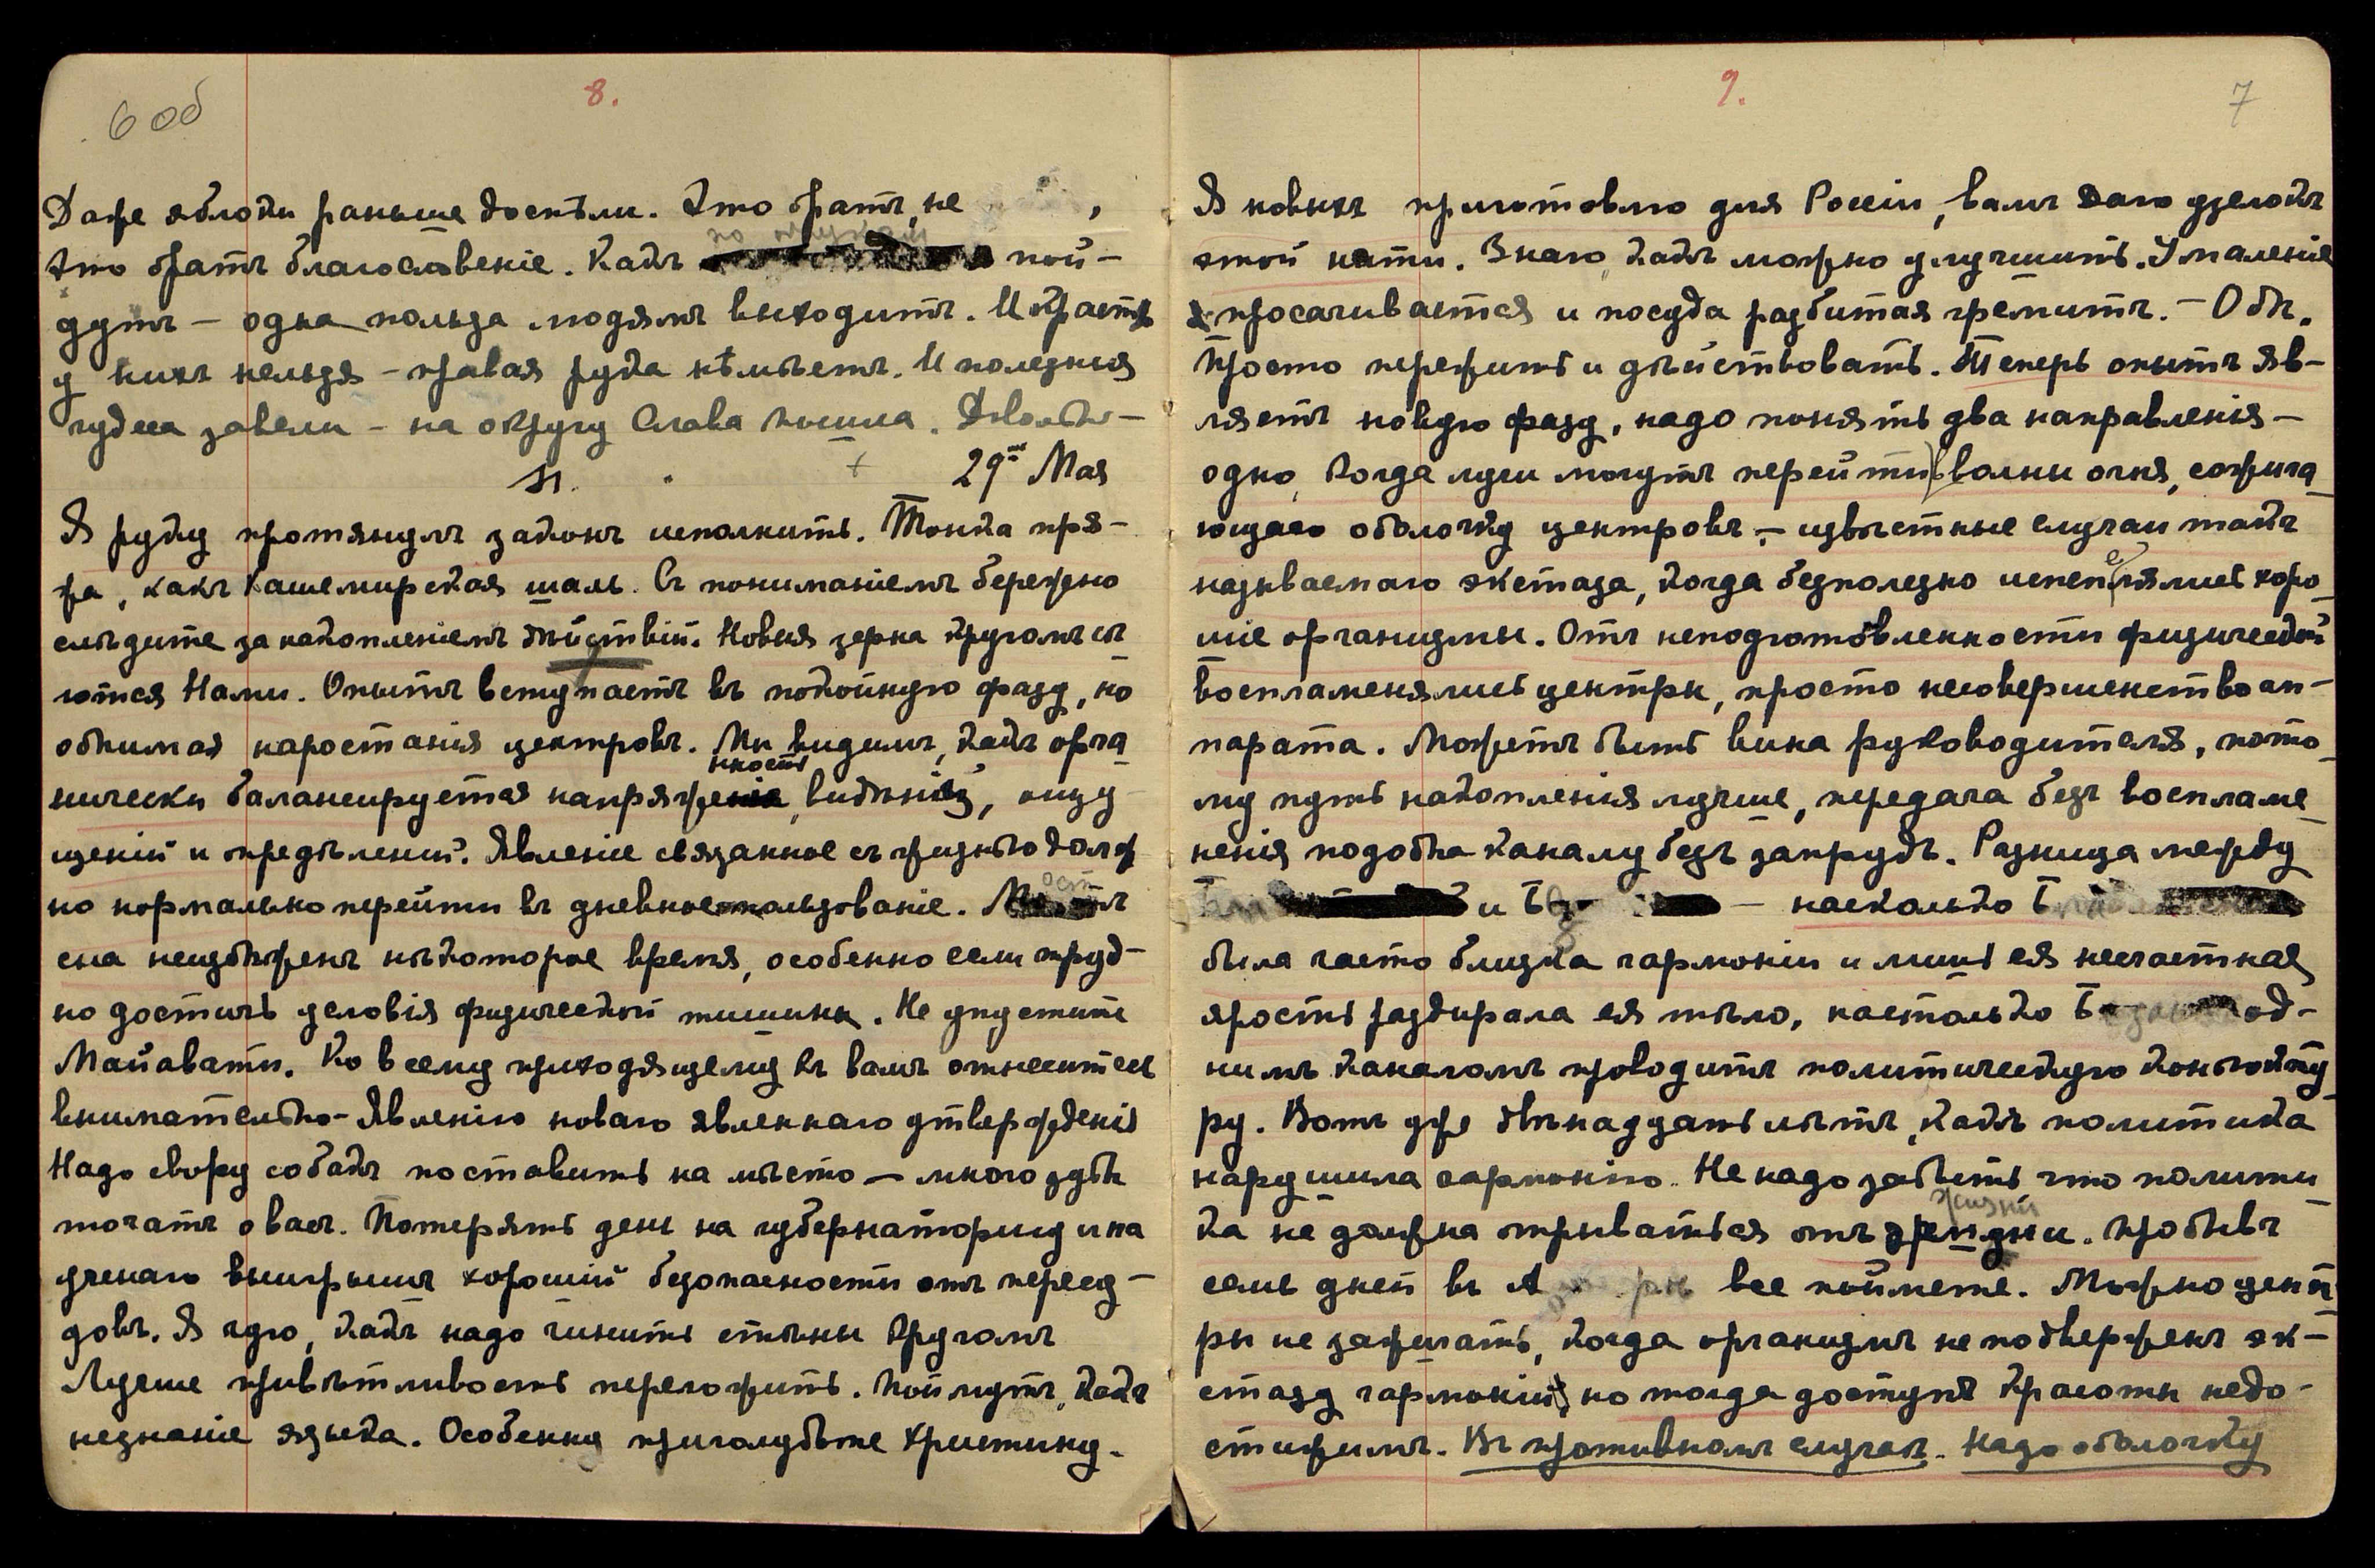 6 об
8.
Даже яблоки раньше доспѣли. Это братъ, не ,
Это братъ благословеніе. Какъ пой-
дутъ – одна польза людямъ выходитъ. И красть
у нихъ нельзя – правая рука нѣмѣетъ. И полезныя
чудеса завели – на округу Слава пошла. Довольно –
29го Мая
Я руку протянулъ законъ исполнить. Тонка пря-
жа, какъ Кашемирская шаль. Съ пониманіемъ бережно
слѣдите за накопленіемъ дѣйствій. Новыя зерна кругомъ сѣ
ются Нами. Опытъ вступаетъ въ покойную фазу, но
обнимая наростанія центровъ. Мы видимъ, какъ орга
нически балансируется напряженность видѣній, ощу
щеній и опредѣленій. Явленіе связанное съ жизнью долж
но нормально перейти въ дневное пользованіе. 
сна неизбѣженъ нѣкоторое время, особенно если труд-
но достичь условія физической тишины. Не упустите
Майавати. Ко всему приходящему къ вамъ отнеситесь
внимательно – Явленію новаго явленнаго утвержденія
Надо свору собакъ поставить на мѣсто – много зубы
точатъ о васъ. Потерять день на губернаторшу и на
ученаго выигрышъ хорошій безопасности отъ пересу-
довъ. Я чую, какъ надо чинить стѣны кругомъ
Лучше привѣтливость переложить. Поймутъ, какъ
незнаніе языка. Особенно приголубьте Христину.
9.
7
Я новыхъ приготовлю для Россіи, вамъ даю узелокъ
этой нити. Знаю, какъ можно улучшить. Умаленіе
просачивается и посуда разбитая гремитъ. –
Просто пережить и дѣйствовать. Теперь опытъ яв-
ляетъ новую фазу, надо понять два направленія –
одно, когда лучи могутъ перейти въ волны огня, сожига
ющаго оболочку центровъ, – извѣстные случаи такъ
называемаго экстаза, когда безполезно испепелялись хоро
шіе организмы. Отъ неподготовленности физической
воспламенялись центры, просто несовершенство ап-
парата. Можетъ быть вина руководителя, пото
му путь накопленія лучше, передача безъ воспламе
ненія подобна каналу безъ запрудъ. Разница между
и – насколько Б
была часто близка гармоніи и лишь ея несчастная
ярость раздирала ея тѣло, настолько од-
нимъ каналомъ проводитъ политическую конъюнкту
ру. Вотъ уже двѣнадцать лѣтъ, какъ политика
нарушила гармонію. Не надо забыть что полити
ка не должна отрываться отъ жизни. Пробывъ
семь дней въ А все поймете. Можно цент
ры не зажигать, когда организмъ не подверженъ эк-
стазу гармоніи, но тогда доступъ красоты недо-
стижимъ. Въ противномъ случаѣ. Надо оболочку